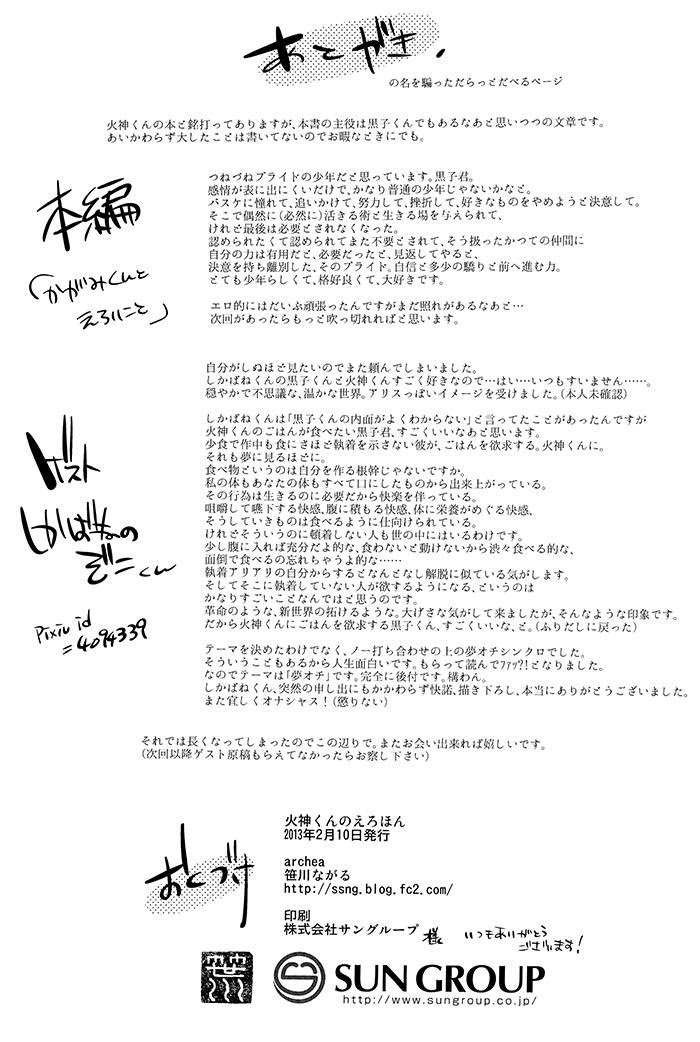 あとがき.
の名を騙っただらっとだべるページ
火神くんの本と銘打ってありますが、本書の主役は黒子くんでもあるなあと思いつつの文章です。
あいかわらず大したことは書いてないのでお暇なときにでも。
本編
「かがみくんと
えろいこと」
つねづねプライドの少年だと思っています。黒子君。
感情が表に出にくいだけで、かなり普通の少年じゃないかなと。
バスケに憧れて、追いかけて、努力して、挫折して、好きなものをやめようと決意して。
そこで偶然に(必然に)活きる術と生きる場を与えられて、
けれど最後は必要とされなくなった。
認められたくて認められてまた不要とされて、そう扱ったかつての仲間に
自分の力は有用だと、必要だったと、見返してやると、
決意を持ち離別した、そのプライド。自信と多少の驕りと前へ進む力。
とても少年らしくて、格好良くて、大好きです。
エロ的にはだいぶ頑張ったんですがまだ照れがあるなあと…
次回があったらもっと吹っ切れればと思います。
ゲスト
しかばねの
ぞこくん
Pixiv id
=4094339
自分がしぬほど見たいのでまた頼んでしまいました。
しかばねくんの黒子くんと火神くんすごく好きなので…はい…いつもすいません……。
穏やかで不思議な、温かな世界。アリスっぽいイメージを受けました。(本人未確認)
しかばねくんは「黒子くんの内面がよくわからない」と言ってたことがあったんですが
火神くんのごはんが食べたい黒子君、すごくいいなあと思います。
少食で作中も食にさほど執着を示さない彼が、ごはんを欲求する。火神くんに。
それも夢に見るほどに。
食べ物というのは自分を作る根幹じゃないですか。
私の体もあなたの体もすべて口にしたものから出来上がっている。
その行為は生きるのに必要だから快楽を伴っている。
咀嚼して嚥下する快感、腹に積もる快感、体に栄養がめぐる快感、
そうしていきものは食べるように仕向けられている。
けれどそういうのに頓着しない人も世の中にはいるわけです。
少し腹に入れば充分だよ的な、食わないと動けないから渋々食べる的な、
面倒で食べるの忘れちゃうよ的な……
執着アリアリの自分からするとなんとなし解脱に似ている気がします。
そしてそこに執着していない人が欲するようになる、というのは
かなりすごいことなんではと思うのです。
革命のような、新世界の拓けるような。大げさな気がして来ましたが、そんなような印象です。
だから火神くんにごはんを欲求する黒子くん、すごくいいな、と。(ふりだしに戻った)
テーマを決めたわけでなく、ノー打ち合わせの上の夢オチシンクロでした。
そういうこともあるから人生面白いです。もらって読んでﾌｧｯ?!となりました。
なのでテーマは「夢オチ」です。完全に後付です。構わん。
しかばねくん、突然の申し出にもかかわらず快諾、描き下ろし、本当にありがとうございました。
また宜しくオナシャス！(懲りない)
それでは長くなってしまったのでこの辺りで。またお会い出来れば嬉しいです。
(次回以降ゲスト原稿もらえてなかったらお察し下さい)
おくづけ
火神くんのえろほん
2013年2月10日発行
archea
笹川ながる
http://ssng.blog.fc2.com/
印刷
株式会社サングループ 様 いつもありがとう
ございます!
SUN GROUP
http://www.sungroup.co.jp/